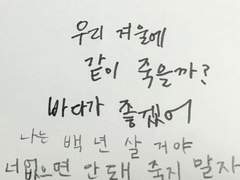 우리 겨울에
같이 죽을까?
바다가 좋겠어
나는 백 년 살 거야
너없으면 안돼 죽지 말자